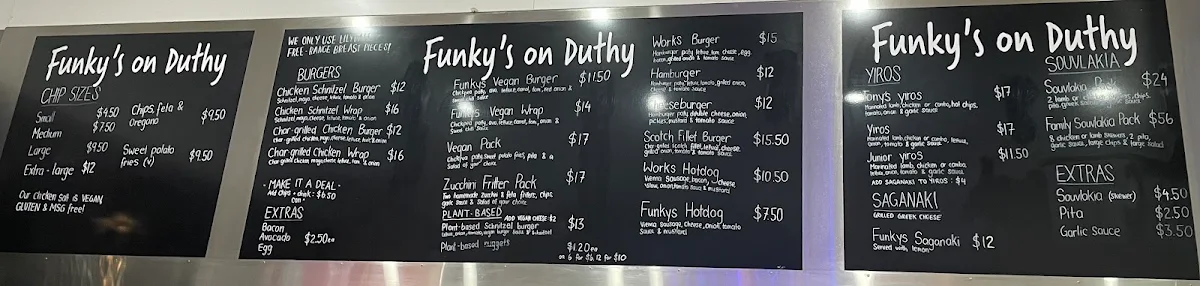 Funky's on Duthy
CHIP SIZES
Small $4.50
Medium $7.50
Large $9.50
Extra-large $12
Chips, feta &
Oregano $9.50
Sweet potato
fries (v) $9.50
Our chicken salt is VEGAN
GLUTEN & MSG free!
WE ONLY USE
FREE-RANGE BREAST PIECES!
Funky's on Duthy
BURGERS
Chicken Schnitzel Burger $12
Schnitzel, mayo, cheese, lettuce, tomato & onion
Chicken Schnitzel Wrap $16
Schnitzel, mayo, cheese, lettuce, tomato & onion
Char-grilled Chicken Burger $12
Char-grilled chicken, mayo, cheese, lettuce, tom, & onion
Char-grilled Chicken Wrap $16
Char-grilled chicken, mayo, cheese, lettuce, tom, & onion
- MAKE IT A DEAL -
Add chips + drink: $6.50
can
EXTRAS
Bacon
Avocado $2.50ea
Egg
Funky's Vegan Burger $11.50
Chickpea patty, lettuce, carrot, tom, onion &
sauce
Funky's Vegan Wrap $14
Chickpea patty, lettuce, carrot, tom, onion &
Sweet chilli Sauce
Vegan Pack $17
Chickpea patty, Sweet potato fries, pita & a
Salad of your choice
Zucchini Fritter Pack $17
Two homemade zucchini & feta fritters, chips,
garlic sauce & Salad of your choice
PLANT-BASED ADD VEGAN CHEESE $2
Plant-based Schnitzel burger $13
Plant-based nuggets $1.20ea
or 6 for $6, 12 for $10
Works Burger $15
Hamburger patty, lettuce, tom, cheese, egg,
bacon, grilled onion & tomato sauce
Hamburger $12
Hamburger patty, lettuce, tomato, grilled onion,
cheese & tomato sauce
Cheeseburger $12
Hamburger patty, double cheese, onion,
pickles, mustard & tomato sauce
Scotch Fillet Burger $15.50
Char-grilled scotch fillet, lettuce, cheese,
grilled onion, tomato & tomato sauce
Works Hotdog $10.50
Vienna Sausage, bacon, cheese,
onion, tomato sauce & mustard
Funkys Hotdog $7.50
Vienna Sausage, cheese, onion, tomato
Sauce & mustard
Funky's on Duthy
YIROS
Tony's yiros $17
Marinated lamb, chicken or combo, hot chips,
tomato, onion & garlic sauce
Yiros $17
Marinated lamb, chicken or combo, lettuce,
tomato, onion & garlic sauce
Junior yiros $11.50
Marinated lamb, chicken or combo,
lettuce, onion, tomato & garlic sauce
ADD SAGANAKI TO YIROS: $4
SAGANAKI
GRILLED GREEK CHEESE
Funkys Saganaki $12
Served with lemon
SOUVLAKIA
Souvlakia Pack $24
Family Souvlakia Pack $56
8 chicken or lamb skewers, 2 pita,
garlic sauce, large chips & large salad
EXTRAS
Souvlakia (skewer) $4.50
Pita $2.50
Garlic sauce $3.50